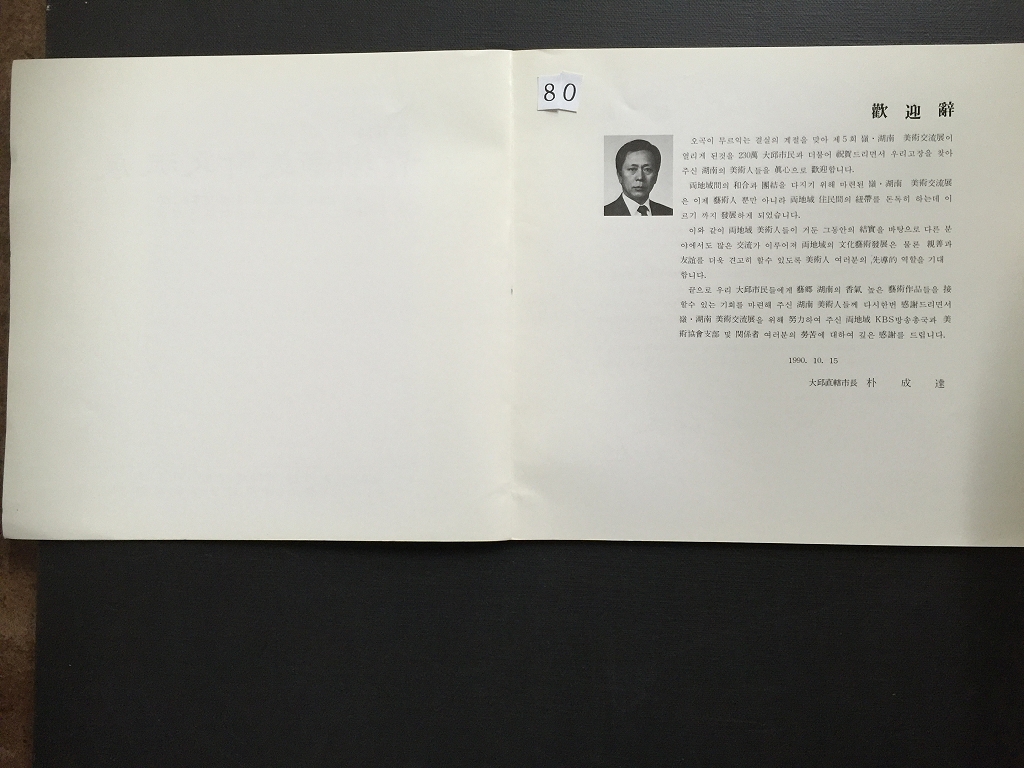 80
歡迎辭
오곡이 무르익는 결실의 계절을 맞아 제5회 嶺·湖南 美術交流展이
열리게 된것을 230萬 大邱市民과 더불어 祝賀드리면서 우리고장을 찾아
주신 湖南의 美術人들을 眞心으로 歡迎합니다.
両地域間의 和合과 團結을 다지기 위해 마련된 嶺·湖南 美術交流展
은 이제 藝術人 뿐만 아니라 両地域 住民間의 紐帶를 돈독히 하는데 이
르기 까지 發展하게 되었습니다.
이와 같이 両地域 美術人들이 거둔 그동안의 結實을 바탕으로 다른 분
야에서도 많은 交流가 이루어져 両地域의 文化藝術發展은 물론 親善과
友誼를 더욱 견고히 할수 있도록 美術人 여러분의 先導的 역할을 기대
합니다.
끝으로 우리 大邱市民들에게 藝鄕 湖南의 香氣 높은 藝術作品들을 接
할수 있는 기회를 마련해 주신 湖南 美術人들께 다시한번 感謝드리면서
嶺·湖南 美術交流展을 위해 努力하여 주신 両地域 KBS방송총국과 美
術協會支部 및 関係者 여러분의 勞苦에 대하여 깊은 感謝를 드립니다.
1990. 10. 15
大邱直轄市長 朴 成 達